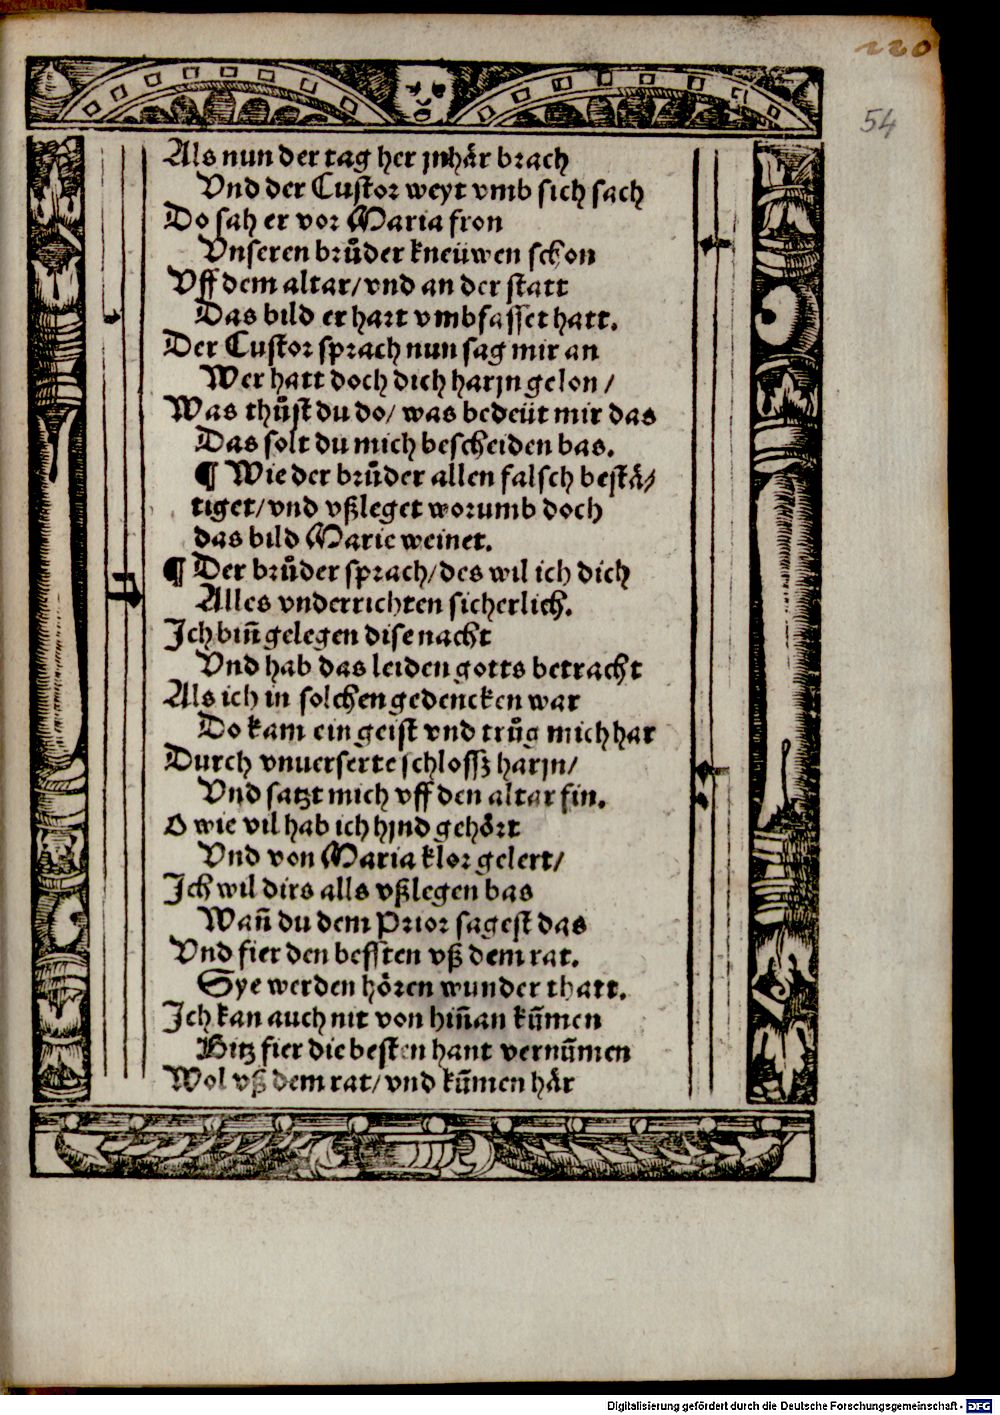 220
54
Als nun der tag her jnhår brach
Vnd der Custor weyt vmb sich sach
Do sah er vor Maria fron
Vnseren brůder kneüwen schon
Vff dem altar/ vnd an der statt
Das bild er hart vmbfasset hatt.
Der Custor sprach nun sag mir an
Wer hatt doch dich harjn gelon /
Was thůst du do/ was bedeüt mir das
Das solt du mich bescheiden bas.
¶ Wie der brůder allen falsch bestå⸗
tiget/ vnd vßleget worumb doch
das bild Marie weinet.
¶ Der brůder sprach/ des wil ich dich
Alles vnderrichten sicherlich.
Ich biñ gelegen dise nacht
Vnd hab das leiden gotts betracht
Als ich in solchen gedencken war
Do kam ein geist vnd trůg mich har
Durch vnuerserte schlossz harjn/
Vnd satzt mich vff den altar fin.
O wie vil hab ich hjnd gehört
Vnd von Maria klor gelert/
Ich wil dirs alls vßlegen bas
Wañ du dem Prior sagest das
Vnd fier den bessten vß dem rat.
Sye werden hören wunder thatt.
Ich kan auch nit von hiñan kūmen
Bitz fier die besten hant vernūmen
Wol vß dem rat/ vnd kūmen hår
Digitalisierung gefördert durch die Deutsche Forschungsgemeinschaft - DFG